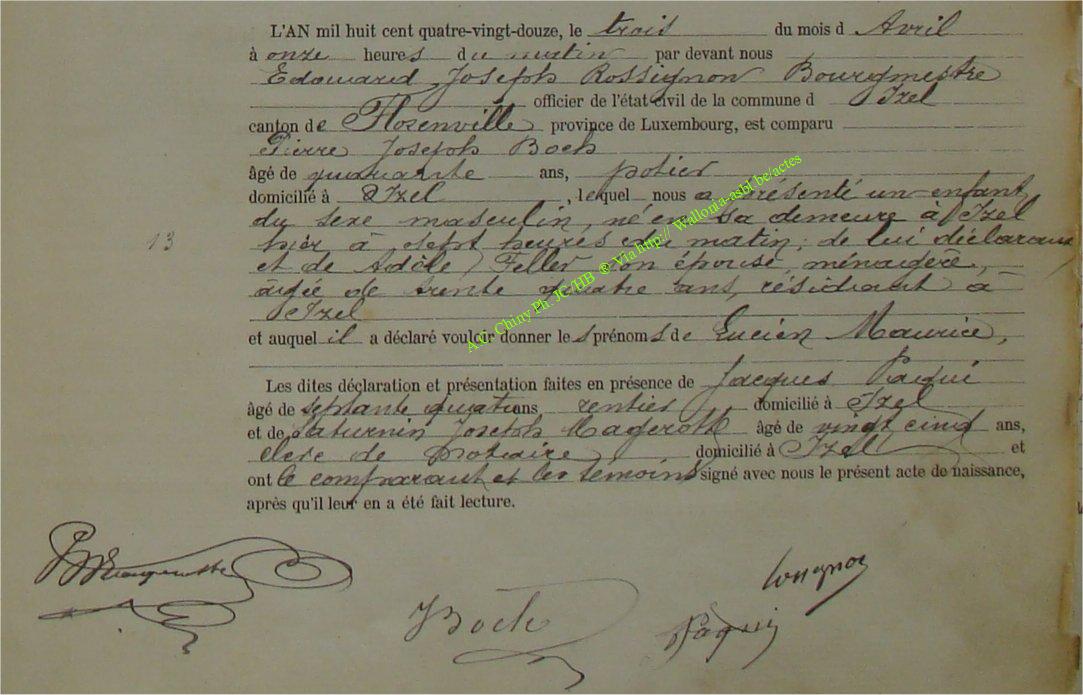 L'AN mil huit cent quatre-vingt-douze, le trois du mois d Avril
à onze heures du matin par devant nous
Edouard Joseph Rossignon Bourgmestre
officier de l'état civil de la commune d Izel
canton de Florenville province de Luxembourg, est comparu
Pierre Joseph Boch
âgé de quarante ans, potier
domicilié à Izel, lequel nous a présenté un enfant
du sexe masculin, né en sa demeure à Izel
hier à sept heures du matin, de lui déclarant
13
et de Adèle Feller son épouse, ménagère,
âgée de trente quatre ans, résidant à
Izel
et auquel il a déclaré vouloir donner les prénoms de Lucien Maurice,
Les dites déclaration et présentation faites en présence de Jacques Paqui
âgé de septante quatre ans rentier domicilié à Izel
et de Saturnin Joseph Magerotte âgé de vingt cinq ans,
clerc de Notaire domicilié à Izel et
ont le comparant et les témoins signé avec nous le présent acte de naissance,
après qu'il leur en a été fait lecture.
A.G. Chiny Ph. JC/HB ® Via http:// Wallonia-asbl.be/actes
Boch
JPaquij
Rossignon